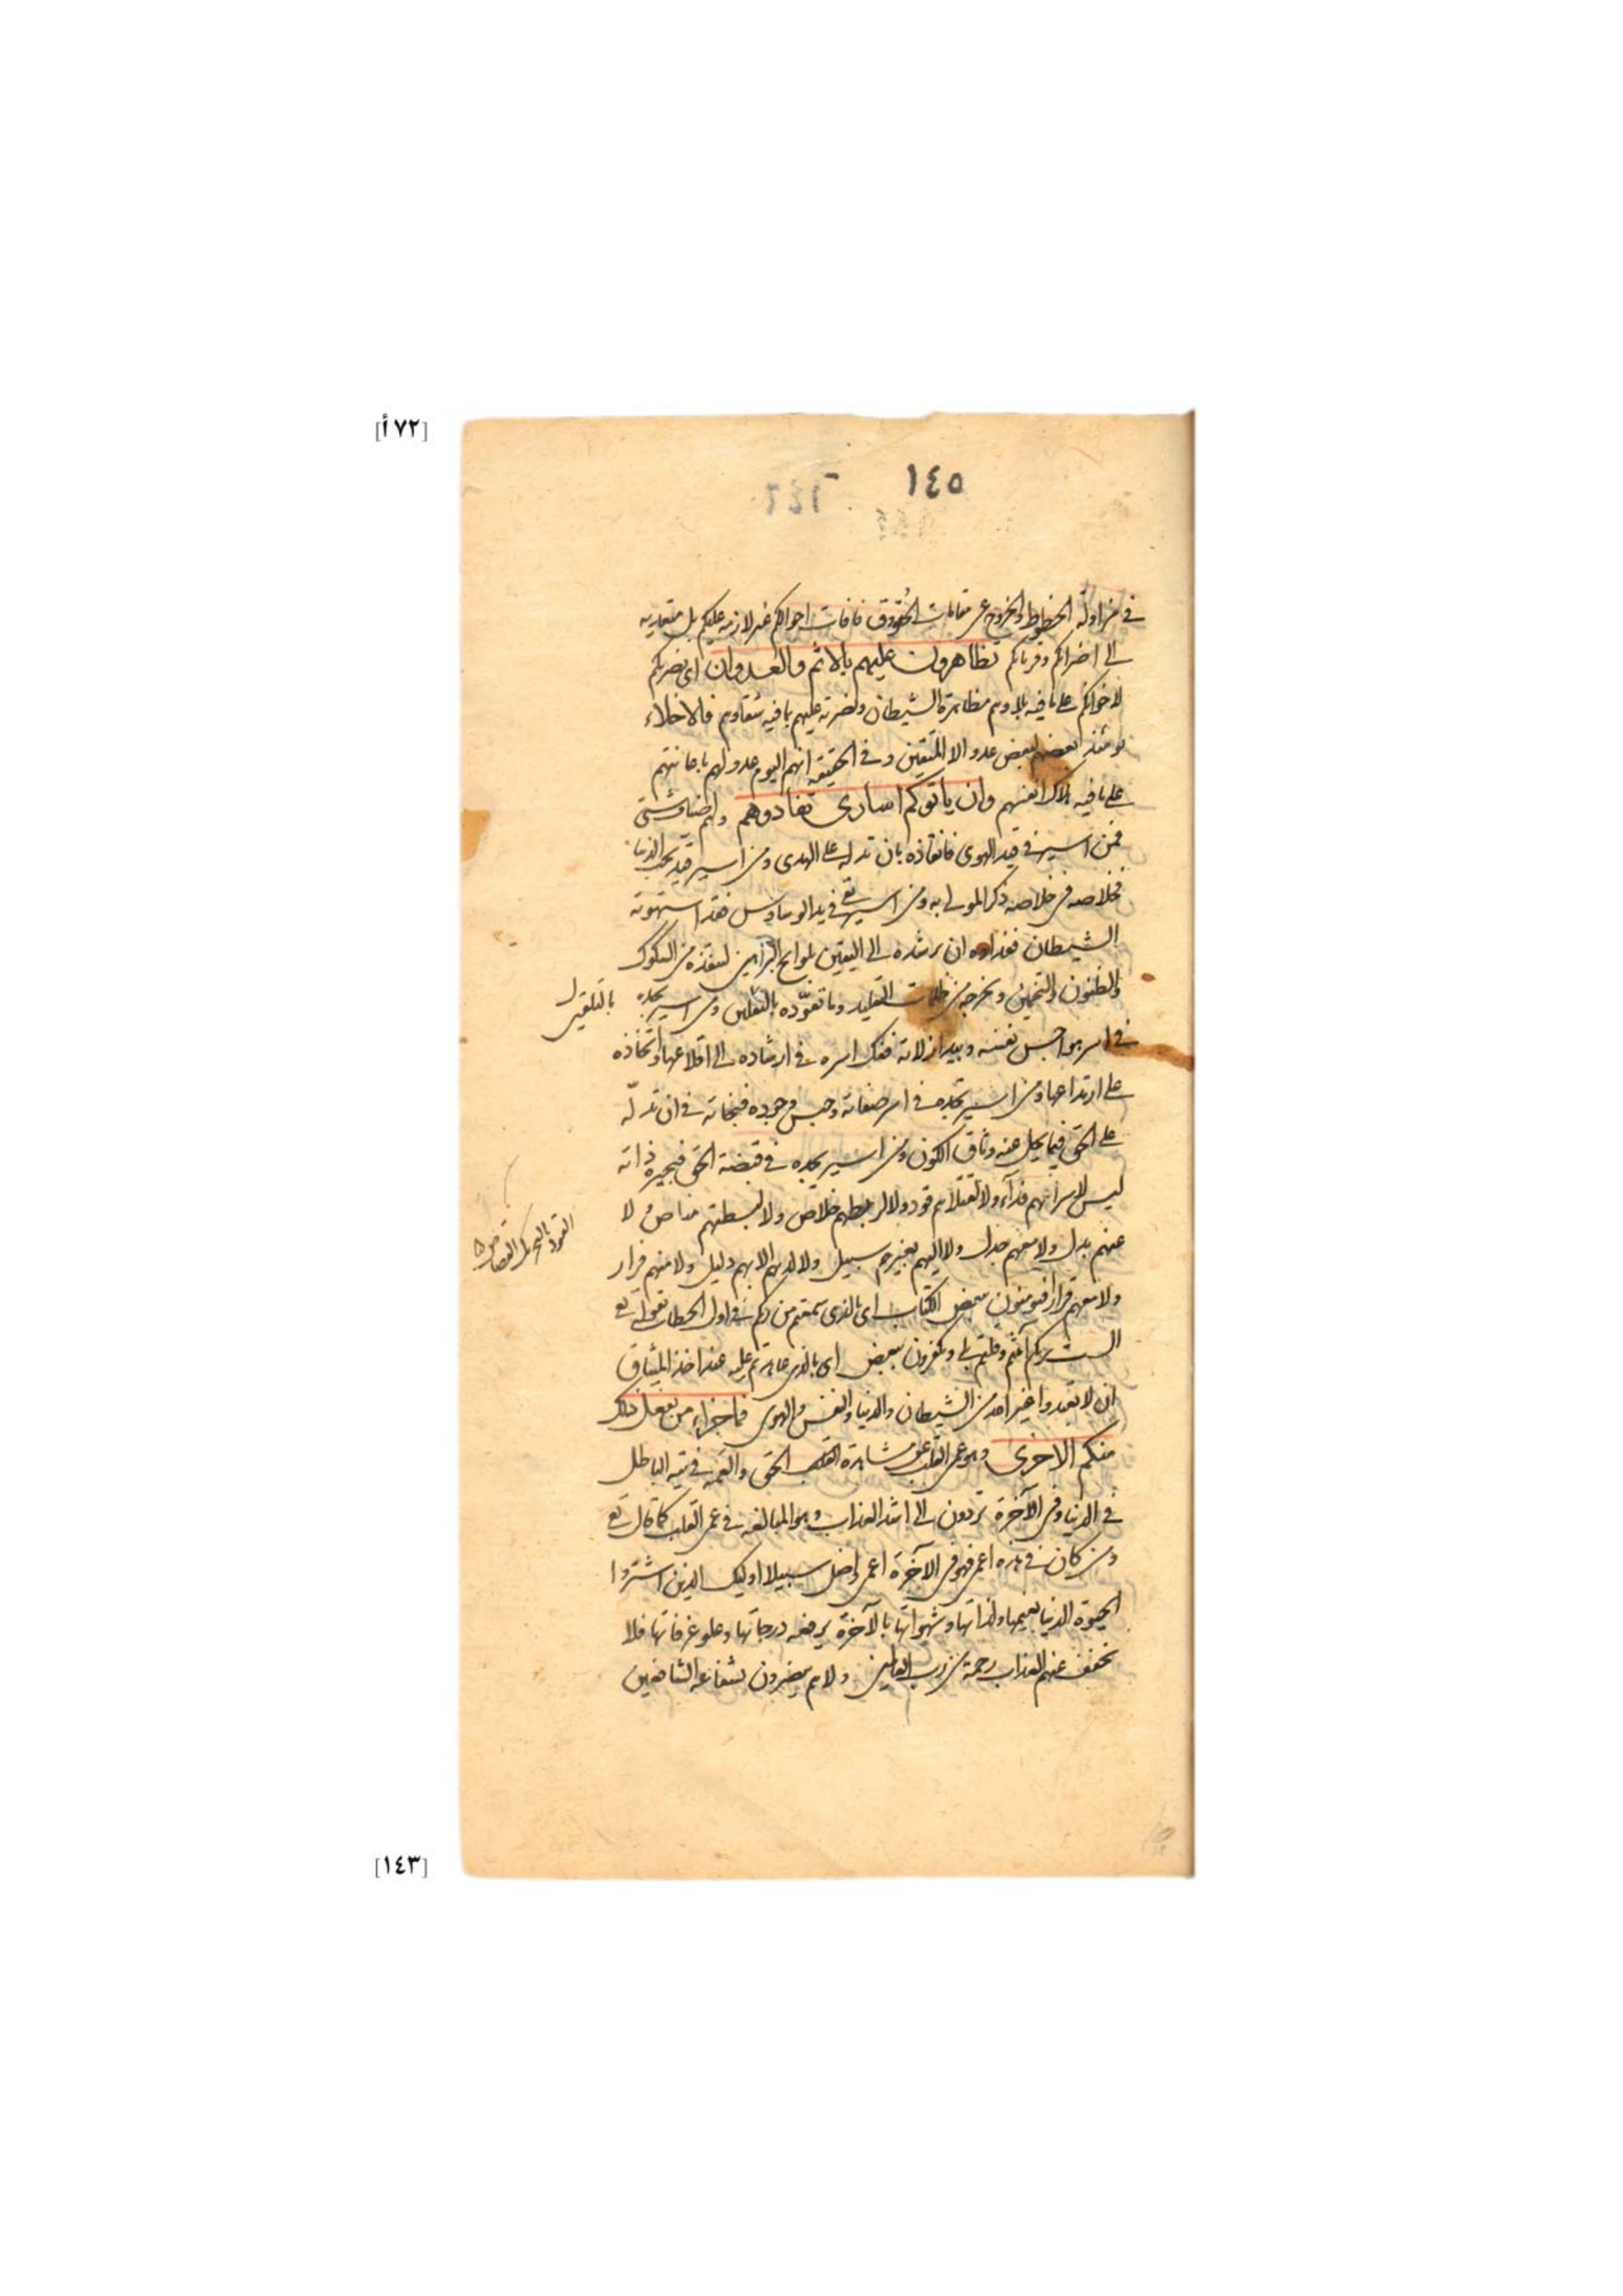 [٧٢أ]
١٤٥
في مزاولة الحظوظ والخروج عن مقامات الحقوق فافات احوالكم غير لازمه عليكم بل متعديه
الى اخوانكم وقربائكم تظاهرون عليهم بالاثم والعدوان اى نصرتكم
لاخوانكم على ما فيه بلاؤهم مظاهرة الشيطان ونصرته عليهم بما فيه شقاوتهم فالاخلاء
يومئذ بعضهم لبعض عدو الا المتقين وفي الحقيقة انهم اليوم عدو لهم باعانتهم
على ما فيه هلاك انفسهم وان ياتوكم اسارى تفادوهم ولهم اصناف شتى
فمن اسير في قيد الهوى فانقاذه بان تدله على الهدى ومن اسير في قيد حب الدنيا
فخلاصه في اخلاصه ذكر المولى به ومن اسير بقى في يد الوساوس فقد استهوته
الشيطان ففداوه ان ترشده الى اليقين بلوايح البراهين لتنقذه من الشكوك
والظنون والتخمين وتخرجه من ظلمات التقليد وما تعوّده بالتلقين ومن اسير تجده
بالتلقين
في اسر هواجس نفسه وبيد ازلاته ففك اسره في ارشاده الى اقلاعها واتخاذه
على ارتداعها ومن اسير تجده في اسر صفاته وحبس وجوده فنجاته في ان تدلّه
على الحق فيما يحل عنه وثاق الكون ومن اسير تجده في قبضة الحق فتخبره انه
ليس لاسرائهم فدآء ولا لقتلاهم قود ولا لربيطهم خلاص ولا لبسطتهم مناص ولا
القود بالتحريك القصاص
عنهم بدل ولا معهم جدل ولا اليهم بغيرهم سبيل ولا لديهم الا بهم دليل ولا منهم فرار
ولا معهم قرار افتومنون ببعض الكتاب اى بالذى سمعتم من ربكم في اول الخطاب بقوله تع
الست بربكم آمنتم وقلتم بلى وتكفرون ببعض اى بالذى عاهدتم عليه عند اخذ الميثاق
ان لا تعبدوا غير الله من الشيطان والدنيا والنفس والهوى فما جزاء من يفعل ذلك
منكم الا خزى وهو عمى القلب عن مشاهدة الحق والعمه في تيه الباطل
في الدنيا وفي الآخرة تردون الى اشد العذاب وهو المبالغه في عمى القلب كما قال تع
ومن كان في هذه اعمى فهو في الآخرة اعمى واضل سبيلا اوليك الذين اشتروا
الحيوة الدنيا بنعيمها ولذاتها وشهواتها بالآخرة برفعه درجاتها وعلو غرفاتها فلا
يخفف عنهم العذاب رحمة من رب العالمين ولا هم ينصرون بشفاعه الشافعين
[١٤٣]